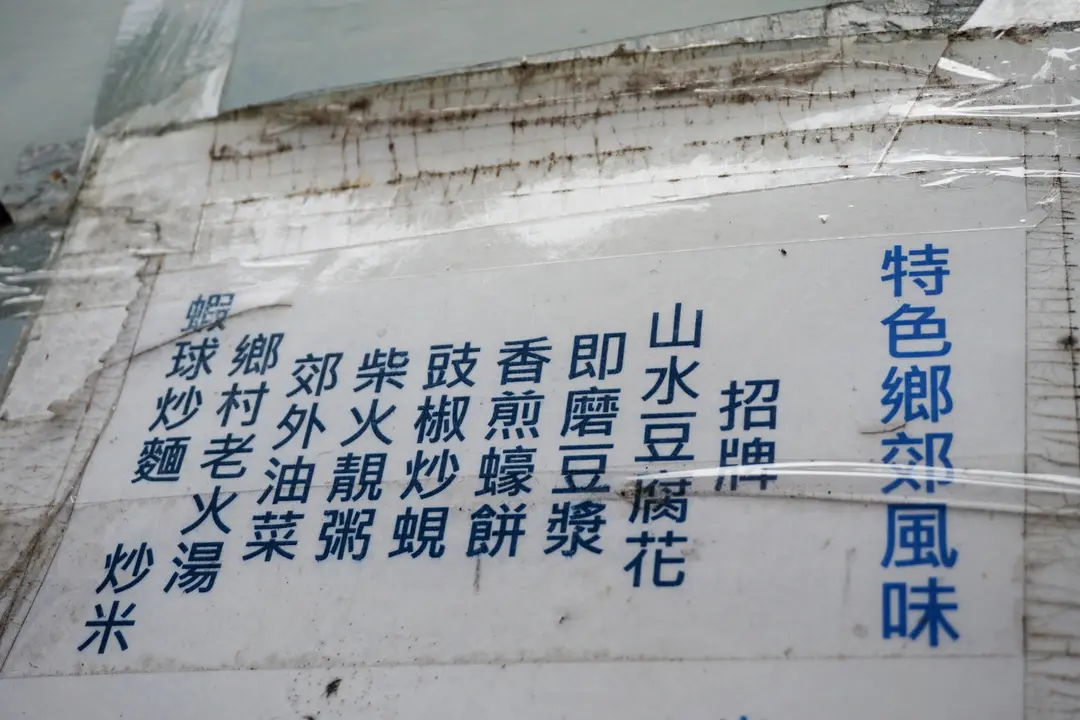 特色鄉郊風味
招牌
山水豆腐花
即磨豆漿
香煎蠔餅
豉椒炒蜆
柴火靚粥
郊外油菜
鄉村老火湯
蝦球炒麵
炒米